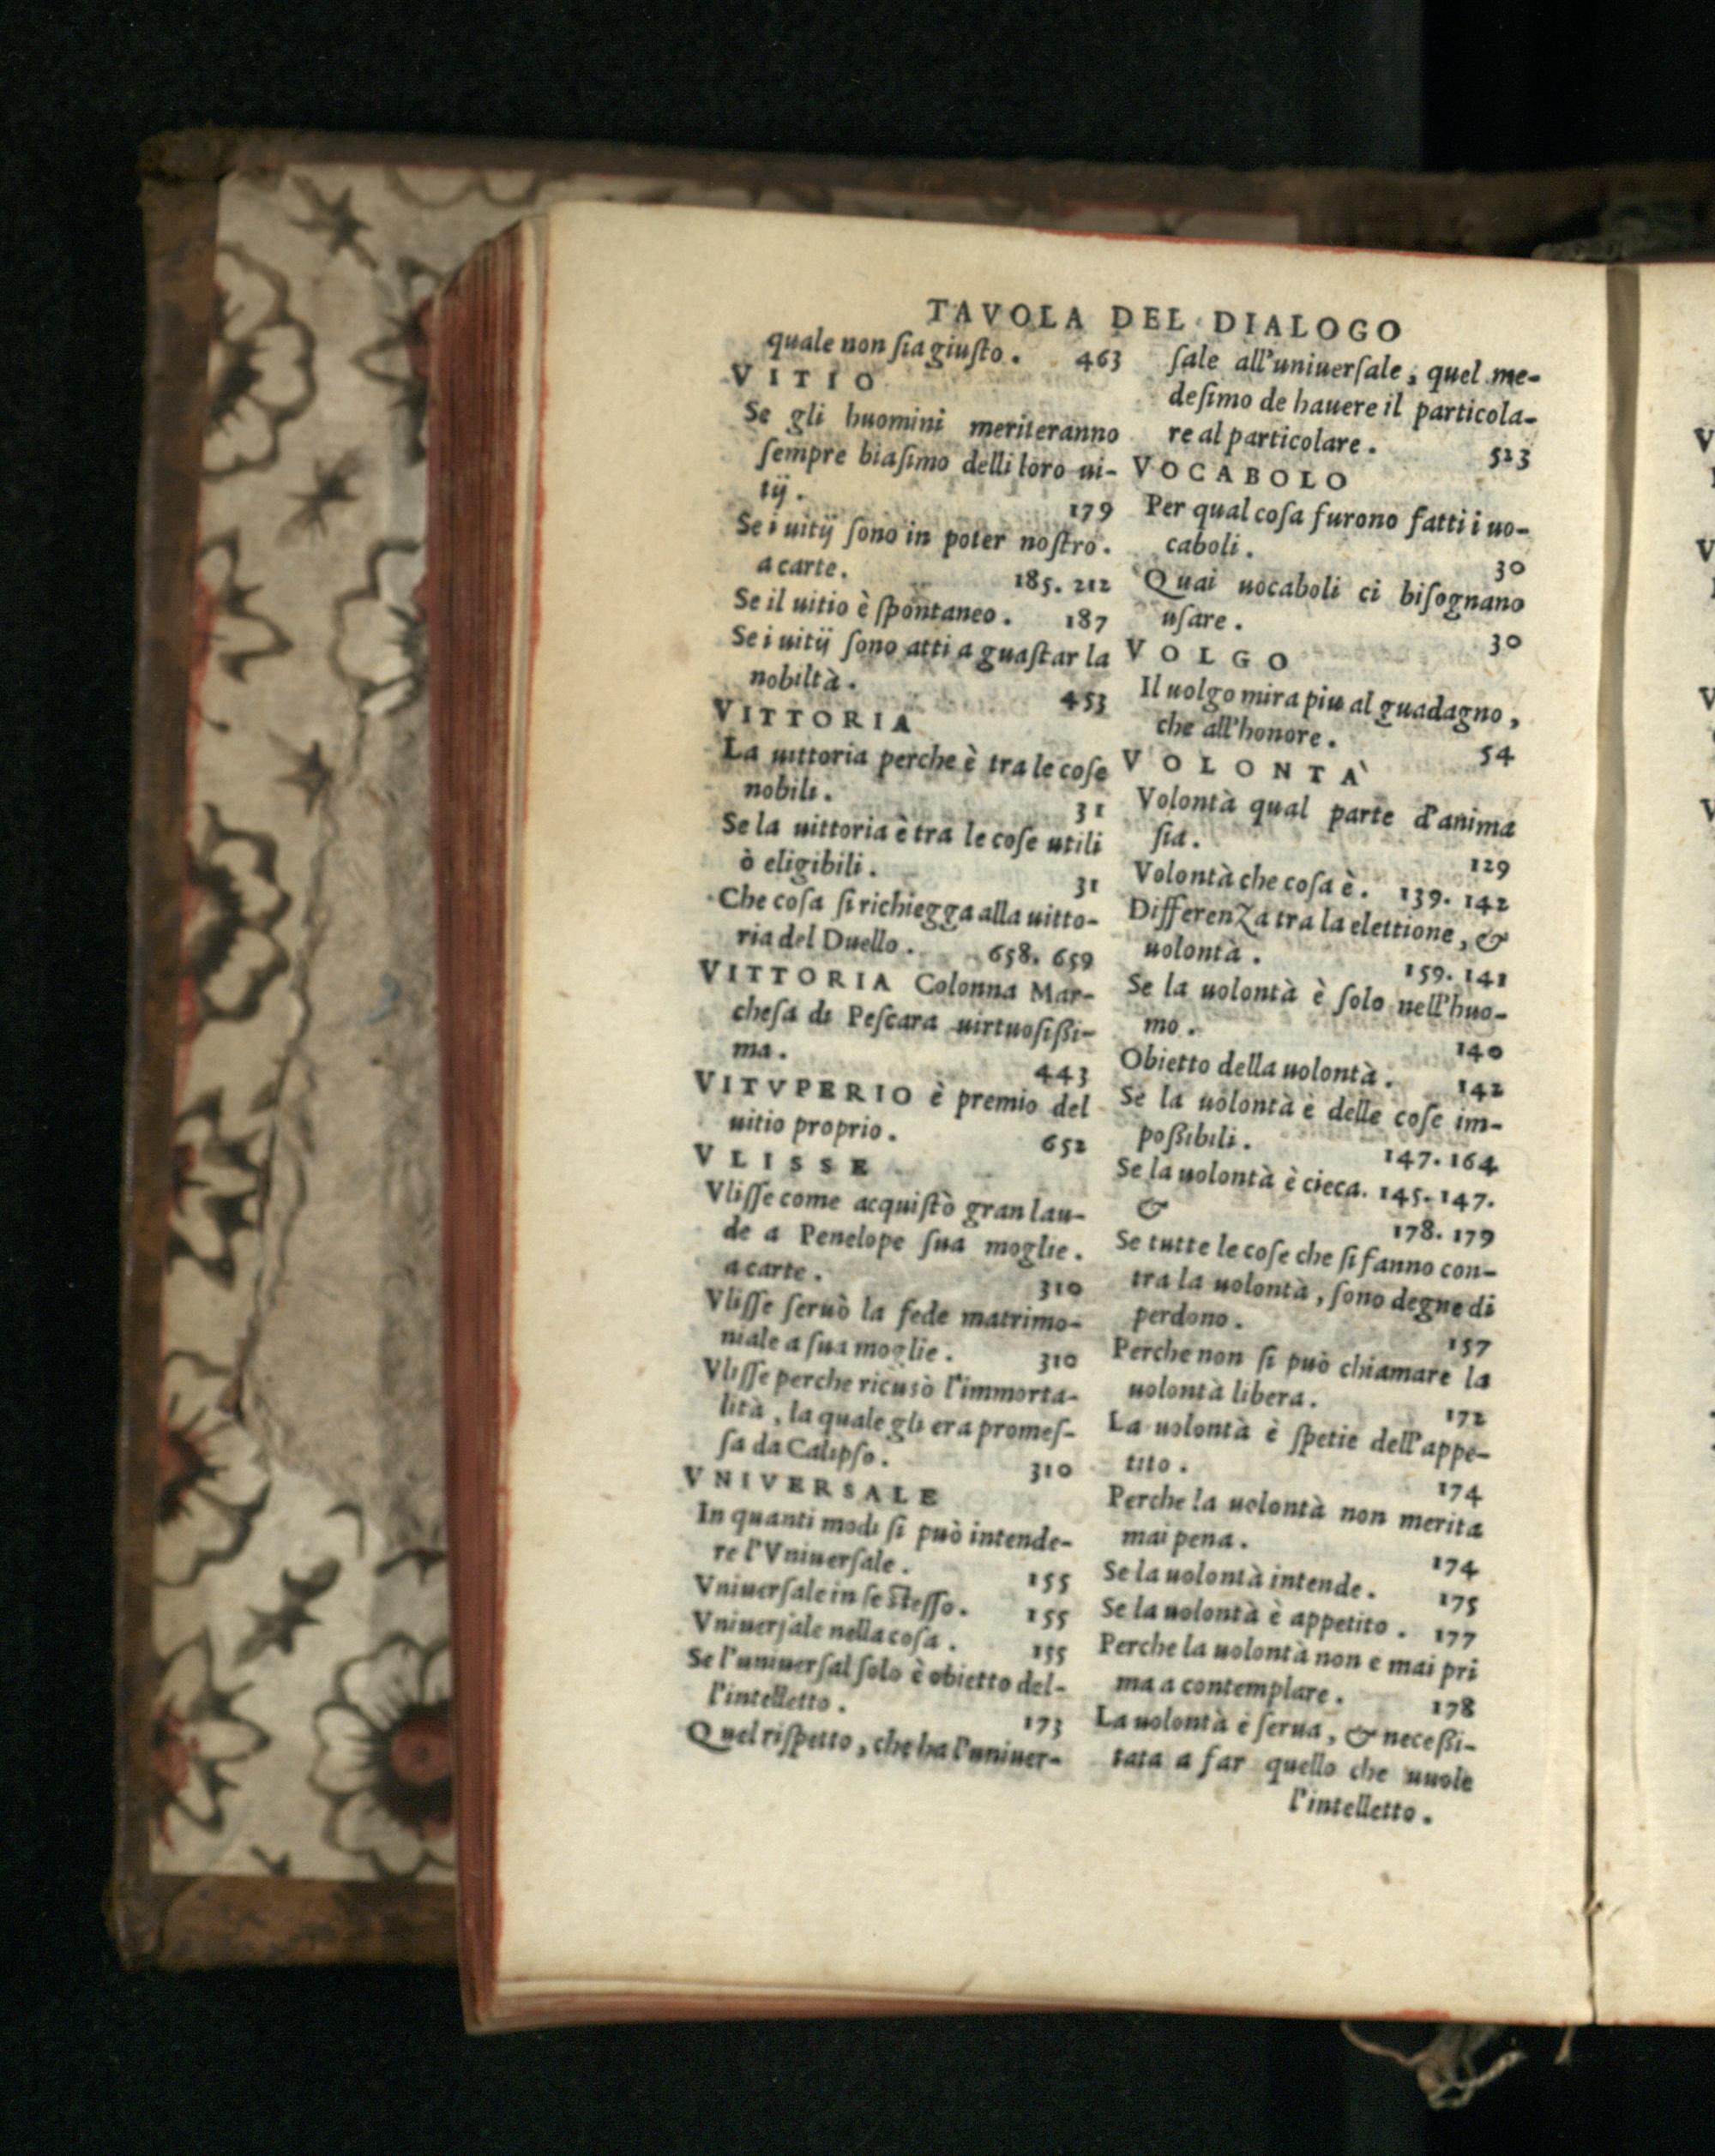 TAVOLA DEL DIALOGO
quale non ſia giuſto. 463
VITIO
Se gli huomini meriteranno
ſempre biaſimo delli loro ui-
tij. 179
Se i uitij ſono in poter noſtro.
a carte. 185. 212
Se il uitio è ſpontaneo. 187
Se i uitij ſono atti a guaſtar la
nobiltà. 453
VITTORIA
La uittoria perche è tra le coſe
nobili. 31
Se la uittoria è tra le coſe utili
ò eligibili. 31
Che coſa ſi richiegga alla uitto-
ria del Duello. 658. 659
VITTORIA Colonna Mar-
cheſa di Peſcara uirtuoſißi-
ma. 443
VITVPERIO è premio del
uitio proprio. 652
VLISSE
Vliſſe come acquiſtò gran lau-
de a Penelope ſua moglie.
a carte. 310
Vliſſe ſeruò la fede matrimo-
niale a ſua moglie. 310
Vliſſe perche ricusò l'immorta-
lità, la quale gli era promeſ-
ſa da Calipſo. 310
VNIVERSALE
In quanti modi ſi può intende-
re l'Vniuerſale. 155
Vniuerſale in ſe steſſo. 155
Vniuerſale nella coſa. 155
Se l'uniuerſal ſolo è obietto del-
l'intelletto. 173
Quel riſpetto, che ha l'uniuer-
ſale all'uniuerſale, quel me-
deſimo de hauere il particola-
re al particolare. 523
VOCABOLO
Per qual coſa furono fatti i uo-
caboli. 30
Quai uocaboli ci biſognano
uſare. 30
VOLGO
Il uolgo mira piu al guadagno,
che all'honore. 54
VOLONTA`
Volontà qual parte d'anima
ſia. 129
Volontà che coſa è. 139. 142
Differenza tra la elettione, &
uolontà. 159. 141
Se la uolontà è ſolo nell'huo-
mo. 140
Obietto della uolontà. 142
Se la uolontà è delle coſe im-
poßibili. 147. 164
Se la uolontà è cieca. 145. 147.
& 178. 179
Se tutte le coſe che ſi fanno con-
tra la uolontà, ſono degne di
perdono. 157
Perche non ſi può chiamare la
uolontà libera. 172
La uolontà è ſpetie dell'appe-
tito. 174
Perche la uolontà non merita
mai pena. 174
Se la uolontà intende. 175
Se la uolontà è appetito. 177
Perche la uolontà non e mai pri
ma a contemplare. 178
La uolontà è ſerua, & neceßi-
tata a far quello che uuole
l'intelletto.